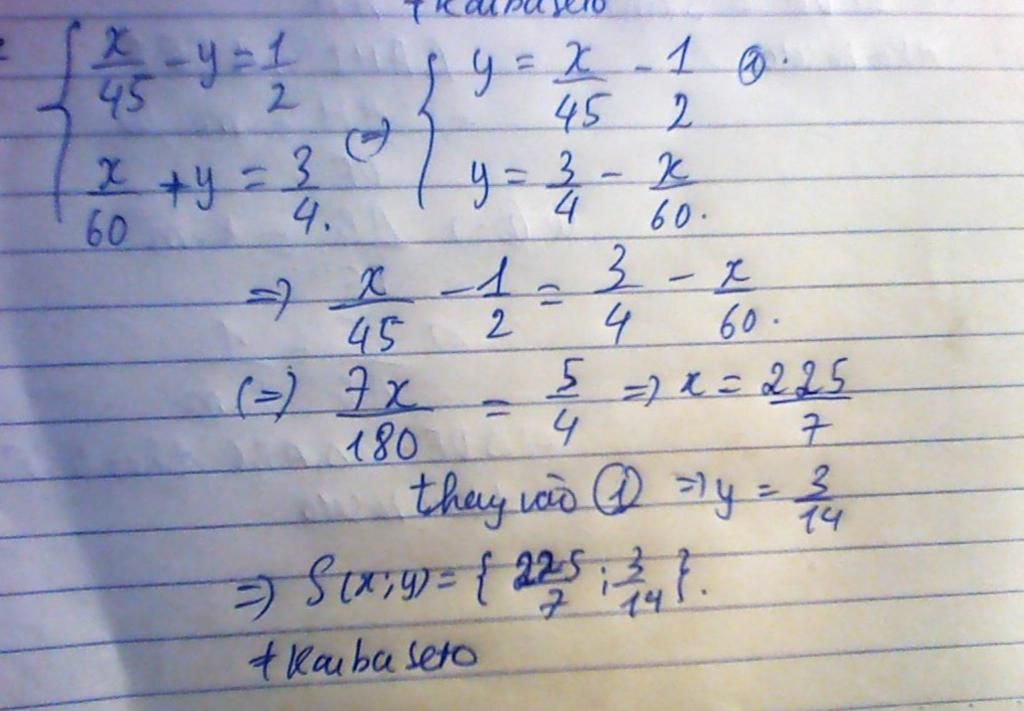 + Kaibaseto
{ x/45 - y = 1/2 { y = x/45 - 1/2 ①.
{ x/60 + y = 3/4. (=) { y = 3/4 - x/60.
=> x/45 - 1/2 = 3/4 - x/60.
(=) 7x/180 = 5/4 => x = 225/7
thay vào ① => y = 3/14
=> S(x;y) = { 225/7 ; 3/14 }.
+ Kaibaseto